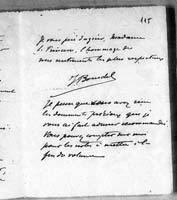 115
Je vous prie d'agréer, Madame
la Princesse, l'hommage de
mes sentiments les plus respectueux
J Bourdel
Je pense que vous avez reçu
les documents précieux que je
vous ai fait adresser recommandés
Vous pouvez compter sur moi
pour les notes à mettre à la
fin du volume